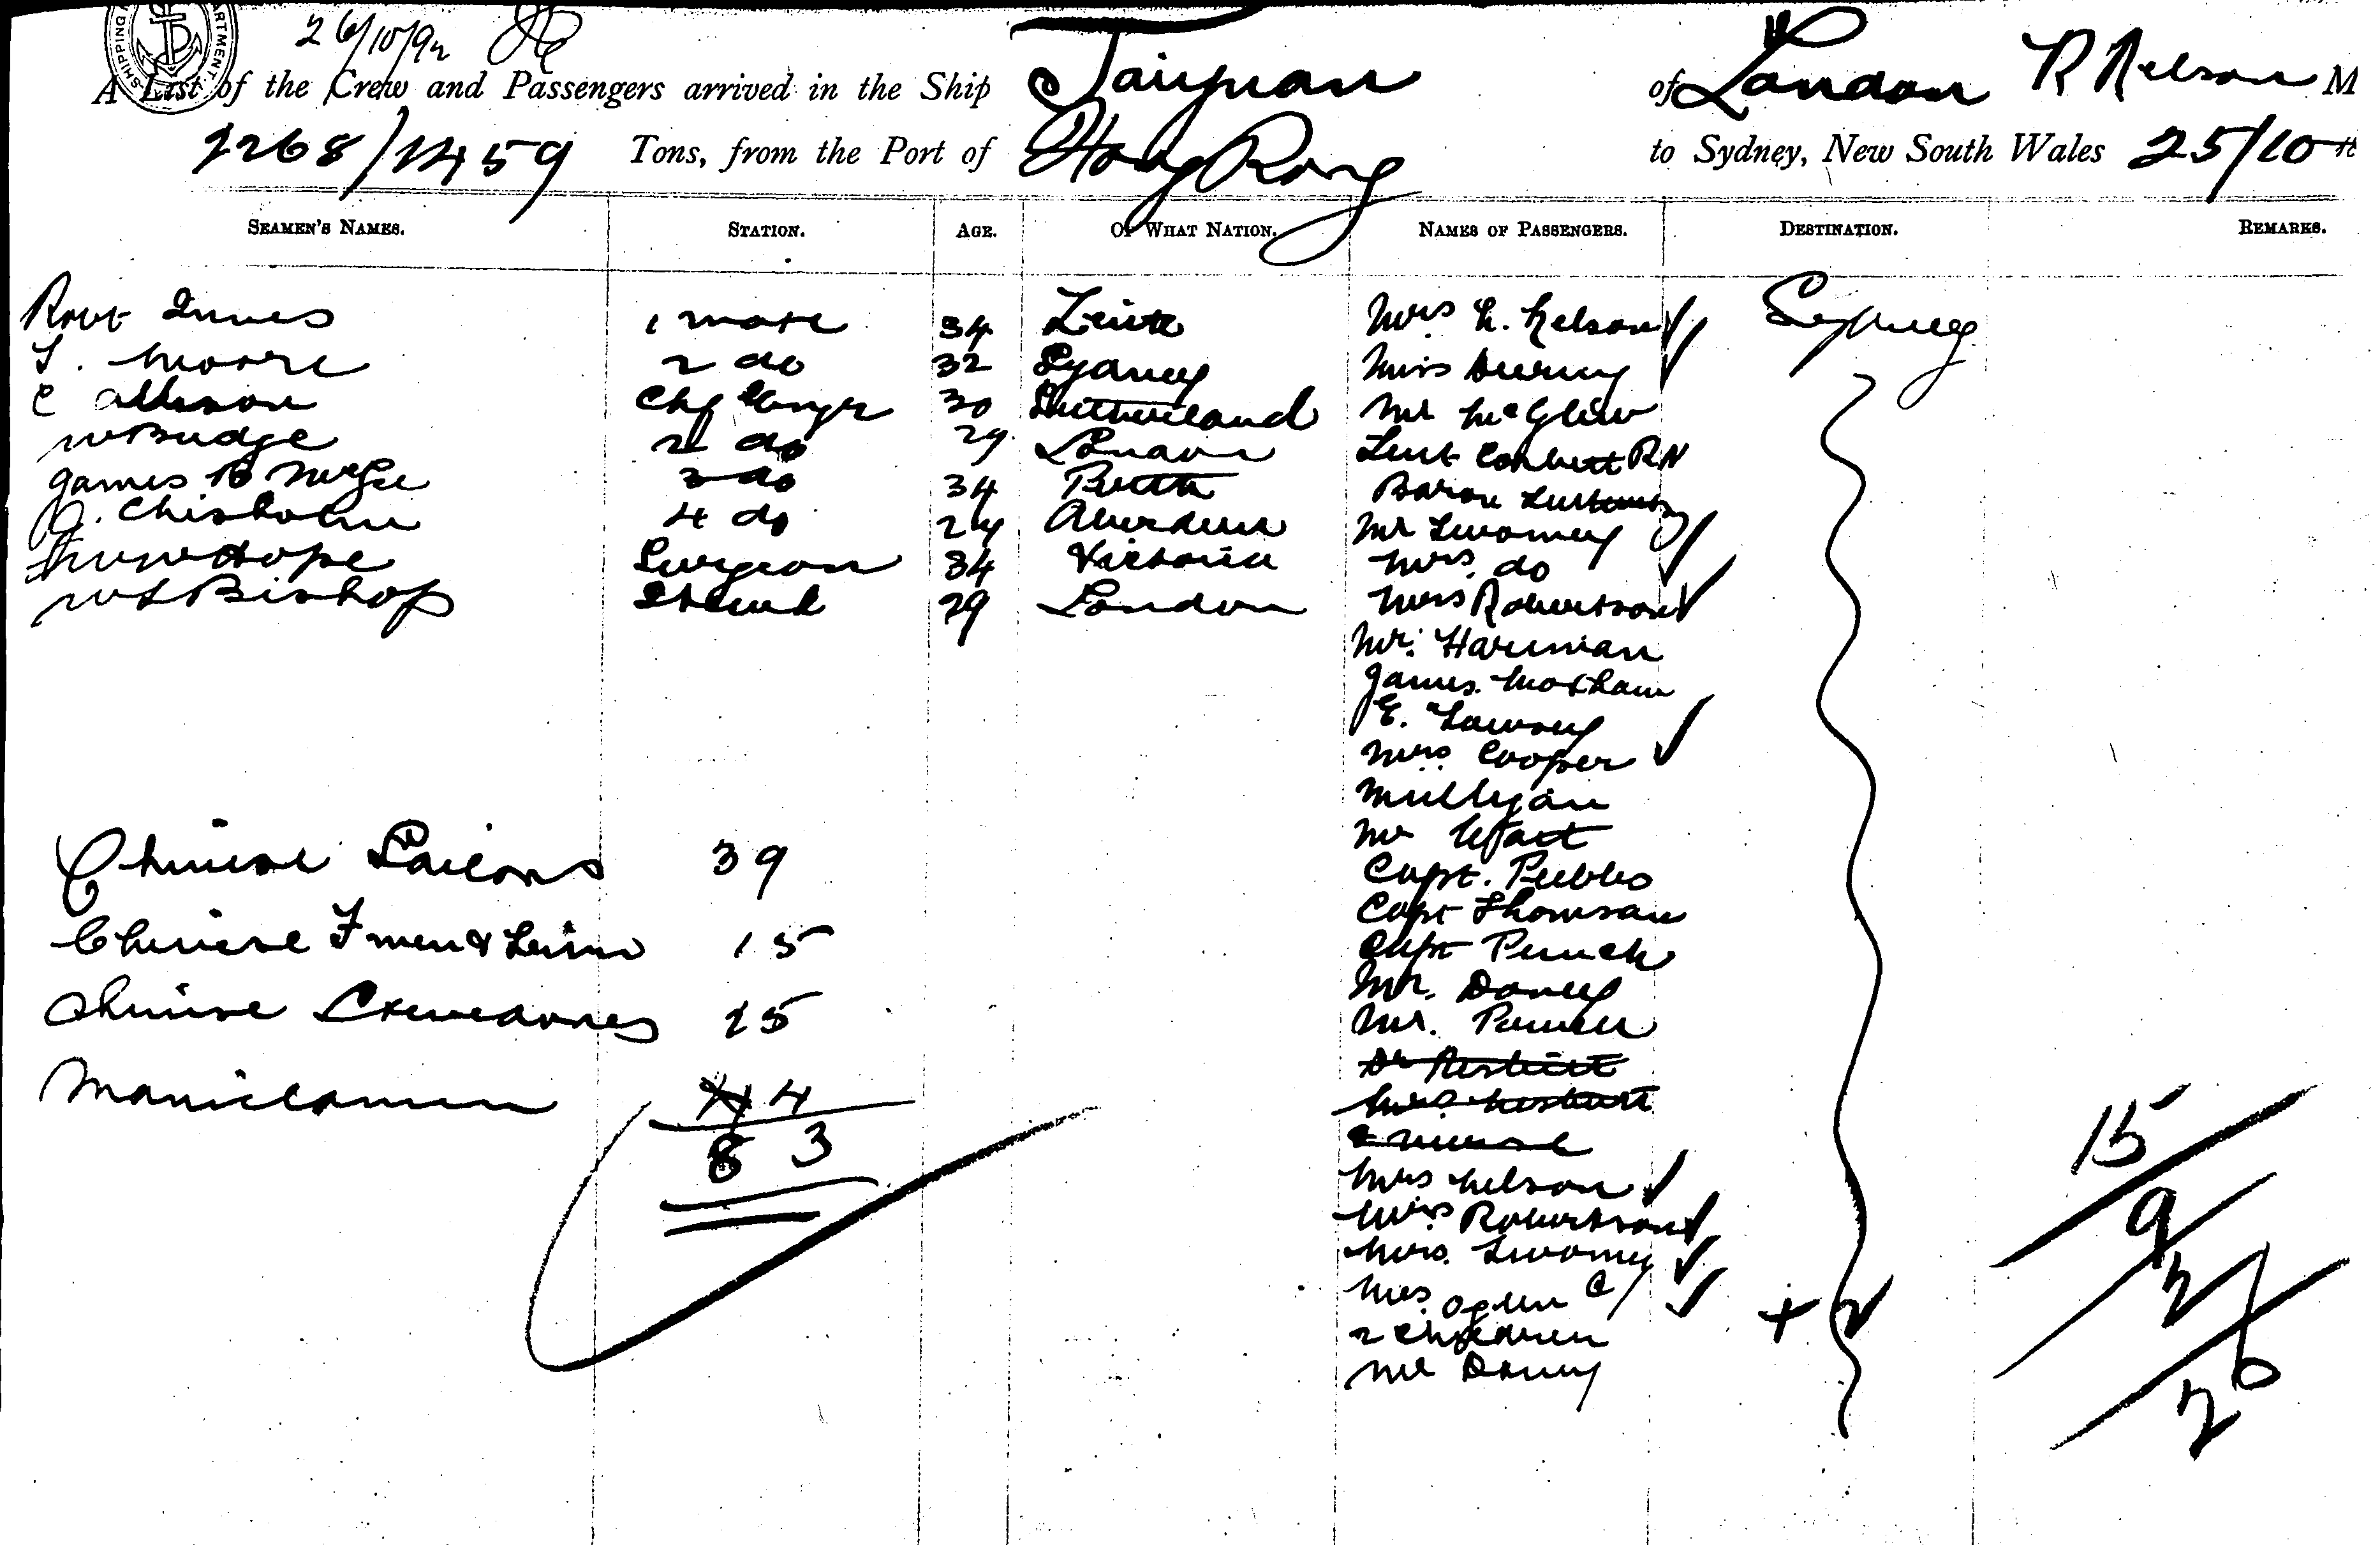 SHIPPING
26/10/92
A List of the Crew and Passengers arrived in the Ship Taiyuan of London R Nelson M
2268/1459 Tons, from the Port of Hong Kong to Sydney, New South Wales 25/10
SEAMEN'S NAMES. STATION. AGE. OF WHAT NATION. NAMES OF PASSENGERS. DESTINATION. REMARKS.
Robt Innes 1 mate 34 Leith Mrs L. Nelson Sydney
T. Moore 2 do 32 Sydney Miss
C Allison Chf Engr 30 Sutherland Mr McGlew
W Budge 2 do 29 London Lieut Corbett RN
James B McGee 3 do 34 Perth Baron
J. Chisholm 4 do 24 Aberdeen Mr Twomey
Hope Surgeon 34 Victoria Mrs do
W S Bishop Steward 29 London Miss Robertson
Mr. Harriman
James Moxham
E.
Mrs Cooper
Mulligan
Mr
Chinese Sailors 39 Capt. Peebles
Capt Thomson
Chinese F men & 15 Capt Punch
Mr. Davey
Chinese 25 Mr.
Dr Nesbitt
Manilamen 4 Mrs Nesbitt
& nurse
83
Mrs Nelson
Miss Robertson
Mrs. Twomey
Mrs Ogden &
2 children
Mr Davey
15
9
2
26